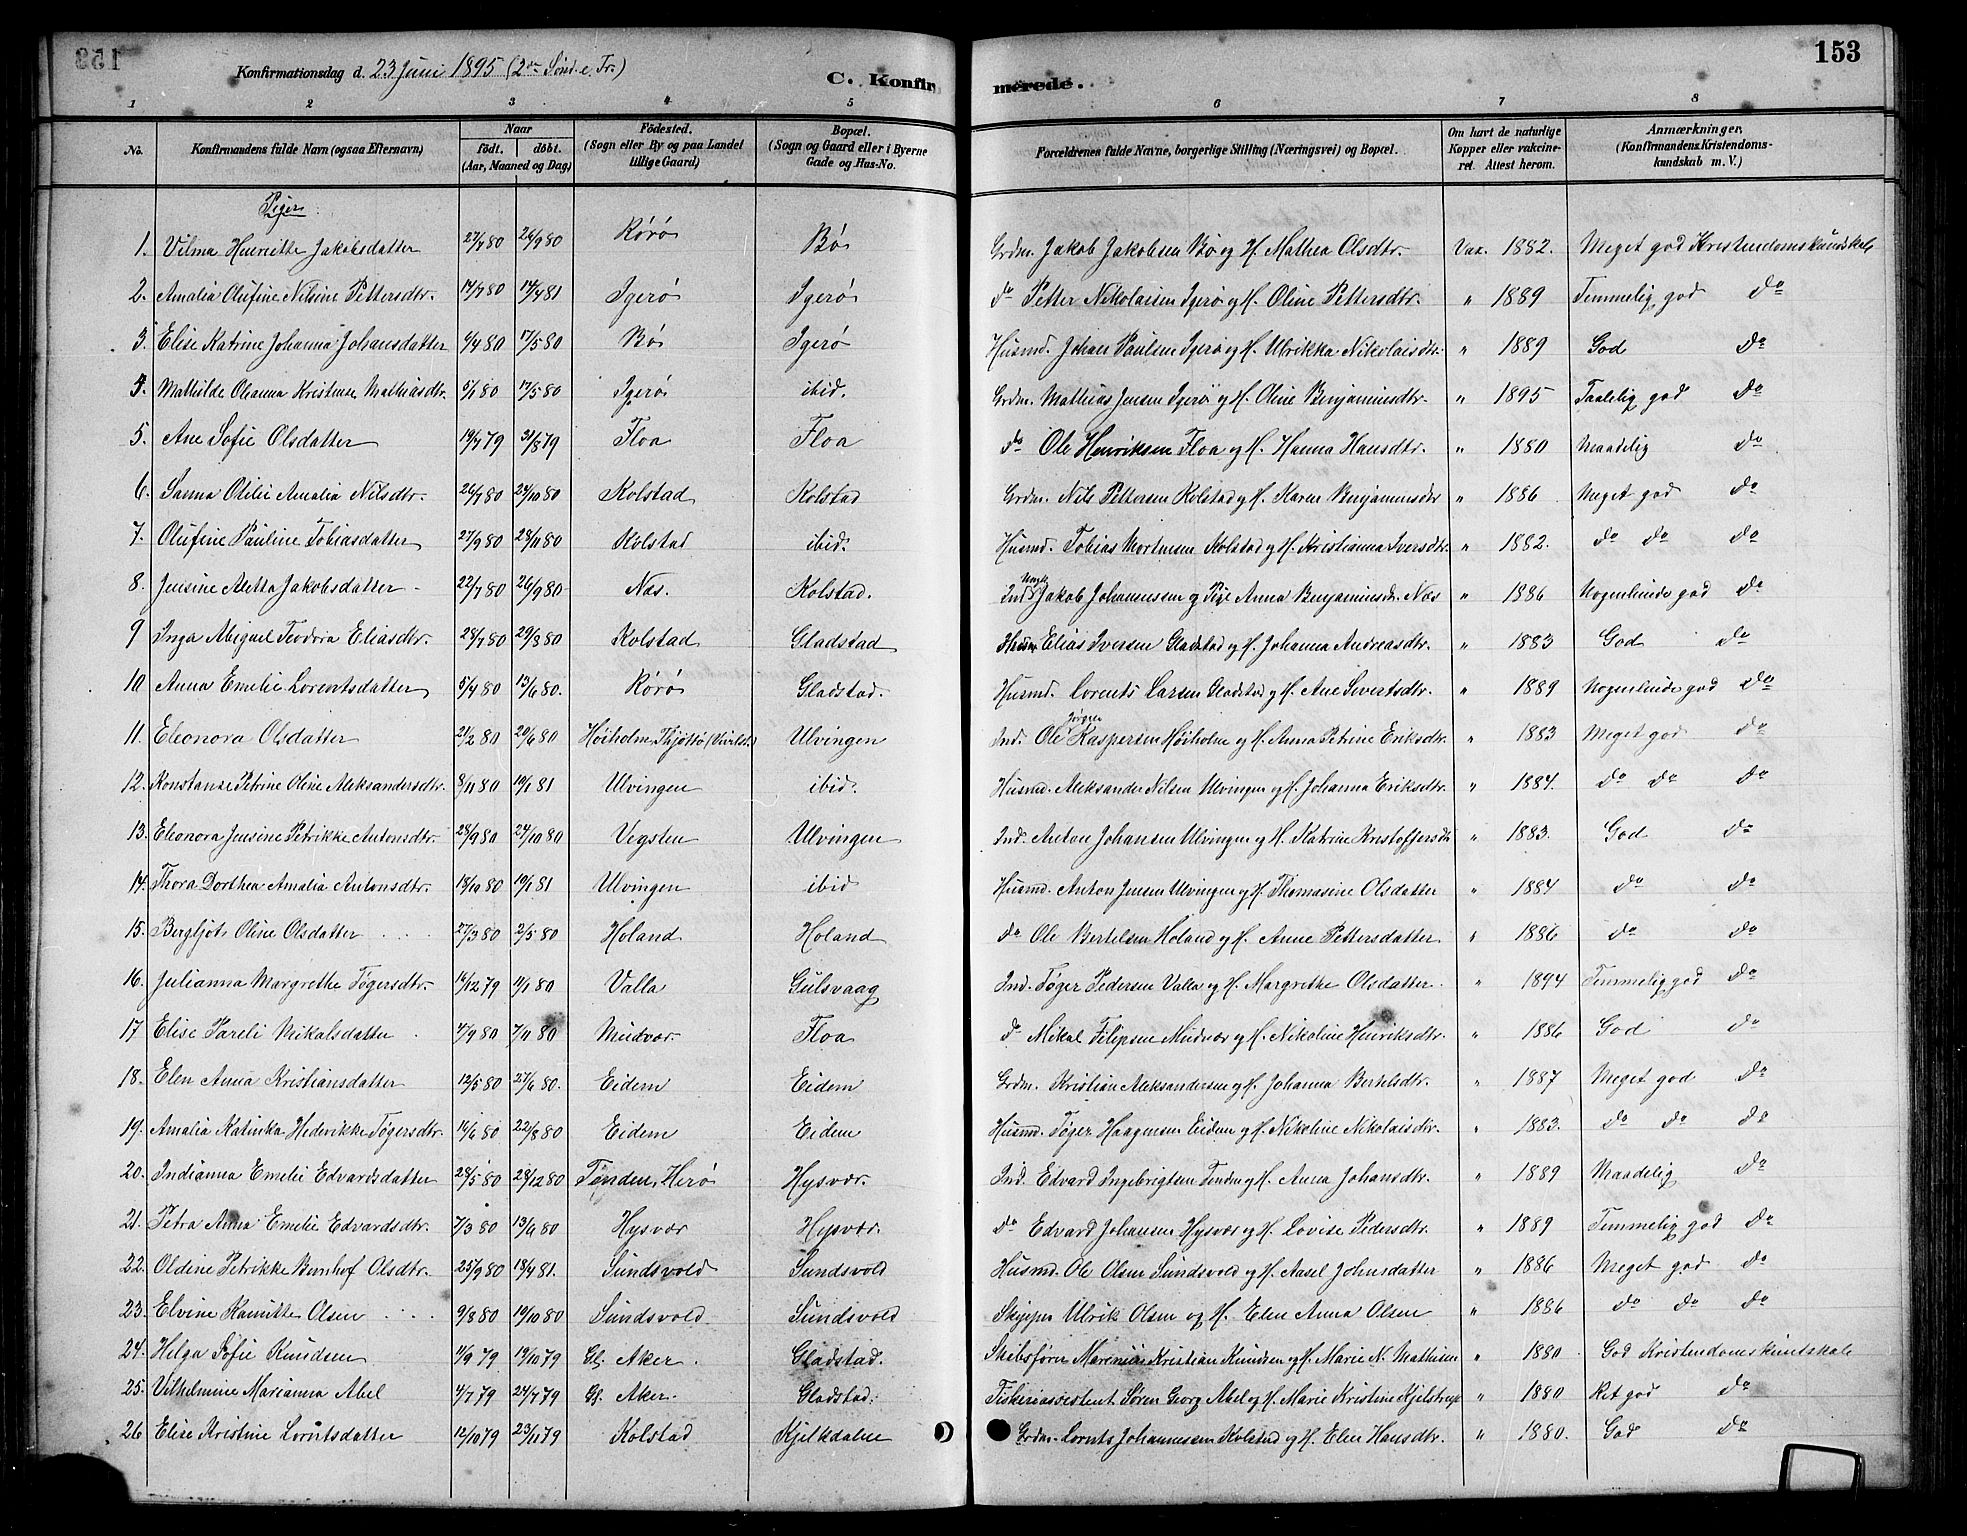 153
Konfirmationsdag d. 23 Juni 1895 (2den Sønd. e. Tr.)
C. Konfirmerede.
1 2 3 4 5 6 7 8
No. Konfirmandens fulde Navn (ogsaa Efternavn) Naar født. døbt. (Aar, Maaned og Dag) Fødested. (Sogn eller By og paa Landet tillige Gaard) Bopæl. (Sogn og Gaard eller i Byerne Gade og Hus-No. Forældrenes fulde Navne, borgerlige Stilling (Næringsvei) og Bopæl. Om havt de naturlige Kopper eller vakcineret. Attest herom. Anmærkninger, (Konfirmandens Kristendomskundskab m. V.)
Piger
1. Vilma Henriette Jakobsdatter 27/7 80 26/9 80 Rørø Bø Grdm. Jakob Jakobsen Bø og H. Mathea Olsdtr. Vax. 1882. Meget god Kristendomskundskab
2. Amalia Olufine Nilsine Pettersdtr. 14/7 80 17/4 81 Igerø Igerø do Petter Nikolaisen Igerø og H. Oline Pettersdtr. " 1889 Temmelig god do
3. Elise Katrine Johanna Johansdatter 9/4 80 17/5 80 Bø Igerø Husmd. Johan Paulsen Igerø og H. Ulrikka Nikolaisdtr. " 1889 God do
4. Mathilde Oleanna Kristense Mathiasdtr. 5/1 80 17/5 80 Igerø ibid. Grdm. Mathias Jensen Igerø og H. Oline Benjaminsdtr. " 1895 Taalelig god do
5. Ane Sofie Olsdatter 19/7 79 31/8 79 Floa Floa do Ole Henriksen Floa og H. Hanna Hansdtr. " 1880 Maadelig do
6. Sanna Otilie Amalia Nilsdtr. 26/7 80 24/10 80 Kolstad Kolstad Grdm. Nils Pettersen Kolstad og H. Karen Benjaminsdtr " 1886 Meget god do
7. Olufine Pauline Tobiasdatter 27/9 80 28/11 80 Kolstad ibid. Husmd. Tobias Mortensen Kolstad og H. Kristianna Iversdtr. " 1882. do do do
8. Jensine Aletta Jakobsdatter 22/7 80 26/9 80 Næs. Kolstad. Ind. Ungk. Jakob Johannessen og Pige Anna Benjaminsd. Næs " 1886 Nogenlunde god do
9 Inga Abigael Teodora Eliasdtr. 28/7 80 29/8 80 Kolstad Gladstad Husm. Elias Iversen Gladstad og H. Johanna Andreasdtr. " 1883 God do
10 Anna Emelie Lorentsdatter 5/4 80 13/6 80. Rørø Gladstad. Husmd. Lorents Larsen Gladstad og H. Ane Sivertsdtr. " 1889 Nogenlunde god do
11. Eleonora Olsdatter 21/2 80 20/6 80 Høiholm, Thjøttø Ulvingen Ind. Ole Jørgen Kaspersen Høiholm og H. Anna Petrine Eriksdtr. " 1883 Meget god do
12. Konstanse Petrine Oline Aleksandersdtr. 8/11 80 19/1 81 Ulvingen ibid. Husmd. Aleksander Nilsen Ulvingen og H. Johanna Eriksdtr. " 1884. do do do
13. Eleonora Jensine Petrikke Antonsdtr. 28/9 80 24/10 80 Vegsten Ulvingen Ind. Anton Johansen Ulvingen og H. Katrine Kristoffersdtr " 1883. God do
14. Thora Dorthea Amalia Antonsdtr. 18/10 80 19/1 81 Ulvingen ibid Husmd. Anton Jensen Ulvingen og H. Thomasine Olsdatter " 1884 do do
15. Bergljot Oline Olsdatter 27/3 80 2/5 80 Holand Holand do Ole Bertelsen Holand og H. Anne Pettersdatter " 1886 do do
16. Julianna Margrethe Tøgersdtr. 16/12 79 11/1 80 Valla Gulsvaag Ind. Tøger Pedersen Valla og H. Margrethe Olsdatter " 1894 Temmelig god do
17 Elise Pareli Mikalsdatter 4/9 80 7/11 80 Mudvær Floa do Mikal Filipsen Mudvær og H. Nikoline Henriksdtr. " 1886 God do
18. Elen Anna Kristiansdatter 12/5 80 27/6 80. Eidem Eidem Grdm. Kristian Aleksandersen og H. Johanna Bertelsdtr. " 1887 Meget god do
19. Amalia Katinka Hedevikke Tøgersdtr. 16/6 80 22/8 80 Eidem Eidem Husmd. Tøger Haagensen Eidem og H. Nikoline Nikolaisdtr. " 1883. do do do
20. Indianna Emelie Edvardsdatter 28/5 80 28/12 80 Tenden, Herø Hysvær. Ind. Edvard Ingebrigtsen Tenden og H. Anna Johansdtr. " 1889 Maadelig do
21. Petra Anna Emelie Edvardsdtr. 7/3 80 13/6 80 Hysvær Hysvær. do Edvard Johansen Hysvær og H. Lovise Pedersdtr. " 1889 Temmelig god do
22. Oldine Petrikke Olsdtr. 25/9 80 18/4 81. Sundsvold Sundsvold Husmd. Ole Olsen Sundsvold og H. Aasel Johnsdatter " 1886 Meget god do
23. Elvine Kamitte Olsen 9/8 80 19/10 80 Sundsvold Sundsvold Skipper Ulrik Olsen og H. Elen Anna Olsen " 1886 do do do
24. Helga Sofie Knudsen 11/9 79 19/10 79 Gl. Aker Gladstad. Skibsfører Marenius Kristian Knudsen og H. Marie N. Mathisen " 1880 God Kristendomskundskab
25. Vilhelmine Marianna Abel 4/7 79 24/7 79 Gl. Aker. Gladstad. Fiskeriassistent Søren Georg Abel og H. Marie Kristine Kjelstrup " 1880 Ret god do
26 Elise Kristine Lorntsdatter 12/10 79 23/11 79 Kolstad Kjelkdalen Grdm. Lornts Johannessen Kolstad og H. Elen Hansdtr. " 1880. God do